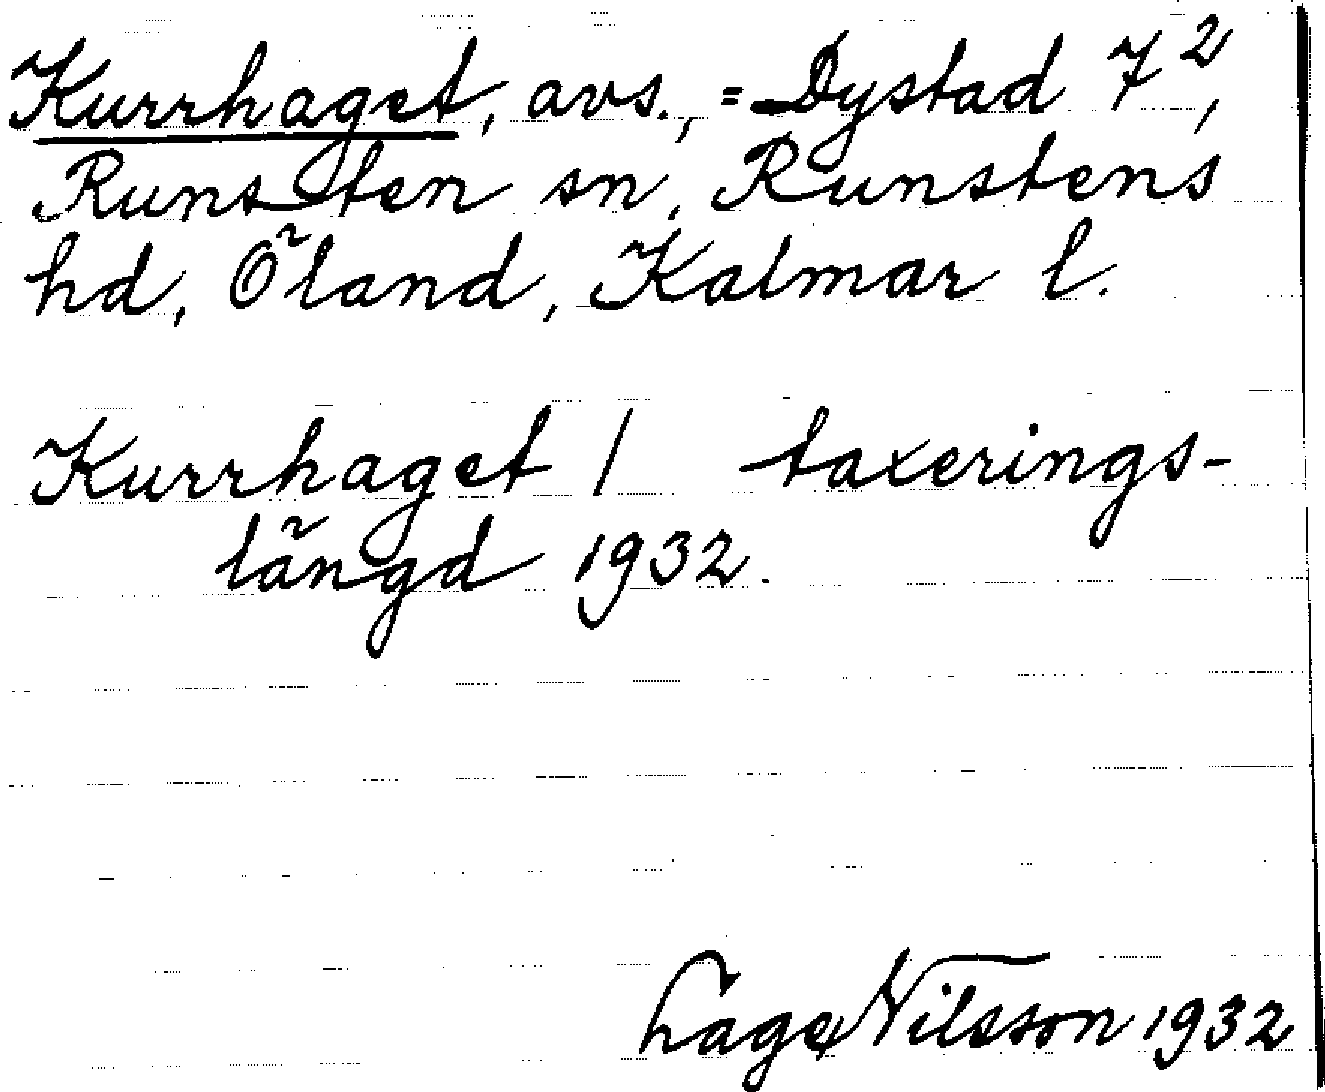 Kurrhaget, avs., = Dystad 7²,
Runsten sn, Runstens
hd, Öland, Kalmar l.
Kurrhaget / taxerings-
längd 1932.
Lage Nilsson 1932